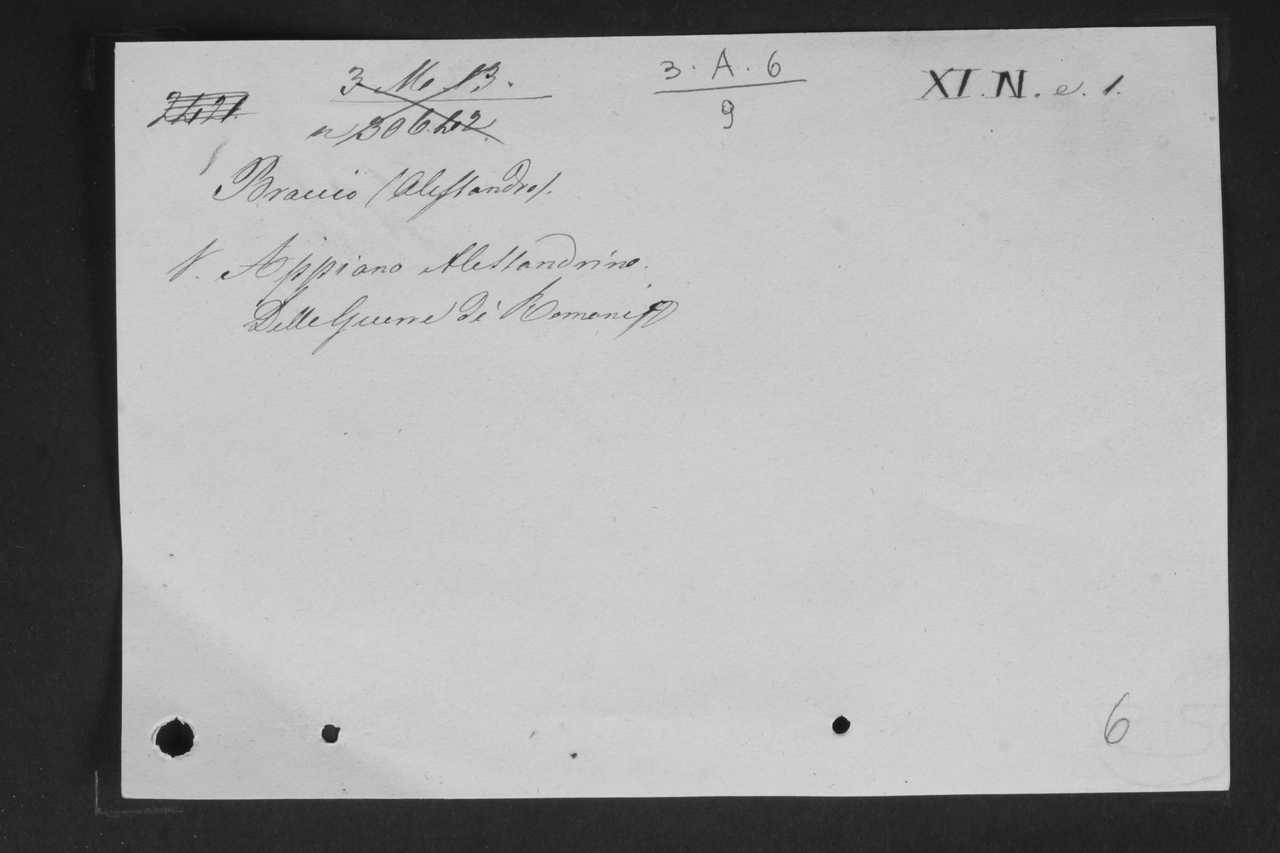 3. A. 6
9
XI. N. e. 1.
Braccio (Alessandro).
V. Appiano Alessandrino.
Delle Guerre de' Romani
6